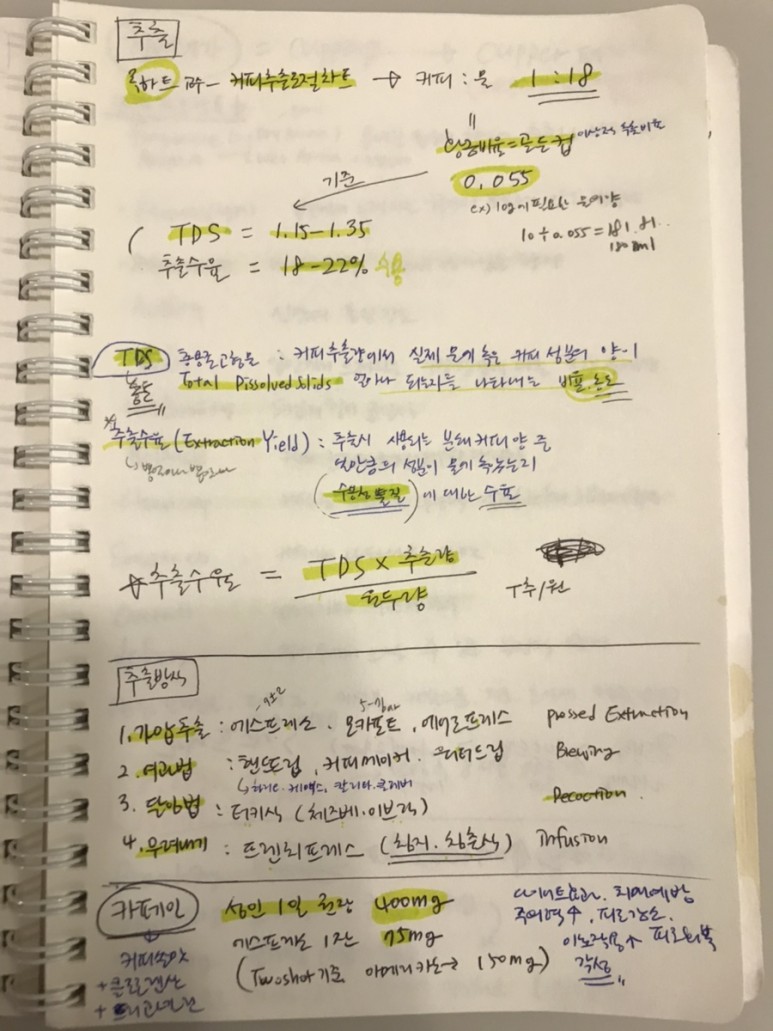 추출
록하트 교수 - 커피추출조절차트 → 커피 : 물 1 : 18
황금비율 = 골든컵 이상적 추출비율
기준 0,055
ex) 10g에 필요한 물의 양
TDS = 1.15-1.35
10 ÷ 0.055 = 181.81.
180ml
추출수율 = 18-22% 수용
TDS 총용존고형물 : 커피추출량에서 실제 물에 녹은 커피 성분의 양이
Total Dissolved Solids 얼마나 되는지를 나타내는 비율, 농도
농도
추출수율 (Extraction Yield) : 추출시 사용되는 분쇄커피 양 중
얼만큼의 성분이 물에 녹았는지
(수용성 물질)에 대한 수율
추출수율 = TDS × 추출량
원두량
T추/원
추출방식
1. 가압추출 : 에스프레소. 모카포트, 에어로프레스 pressed Extraction
2. 여과법 : 핸드드립, 커피메이커. 워터드립 Brewing
↳ 하리오. 케멕스, 칼리타. 클레버
3. 달임법 : 터키식 (체즈베.이브릭) Decoction.
4. 우려내기 : 프렌치프레스 (침지. 침출식) Infusion
카페인 성인 1일 권장 400mg
다이어트효과. 치매예방
집중력↑, 피로감소.
에스프레소 1잔 75mg
이뇨작용↑ 피로회복
(Twoshot기준 아메리카노→ 150mg) 각성
커피쓴맛
+ 클로로겐산
+ 트리고넬린